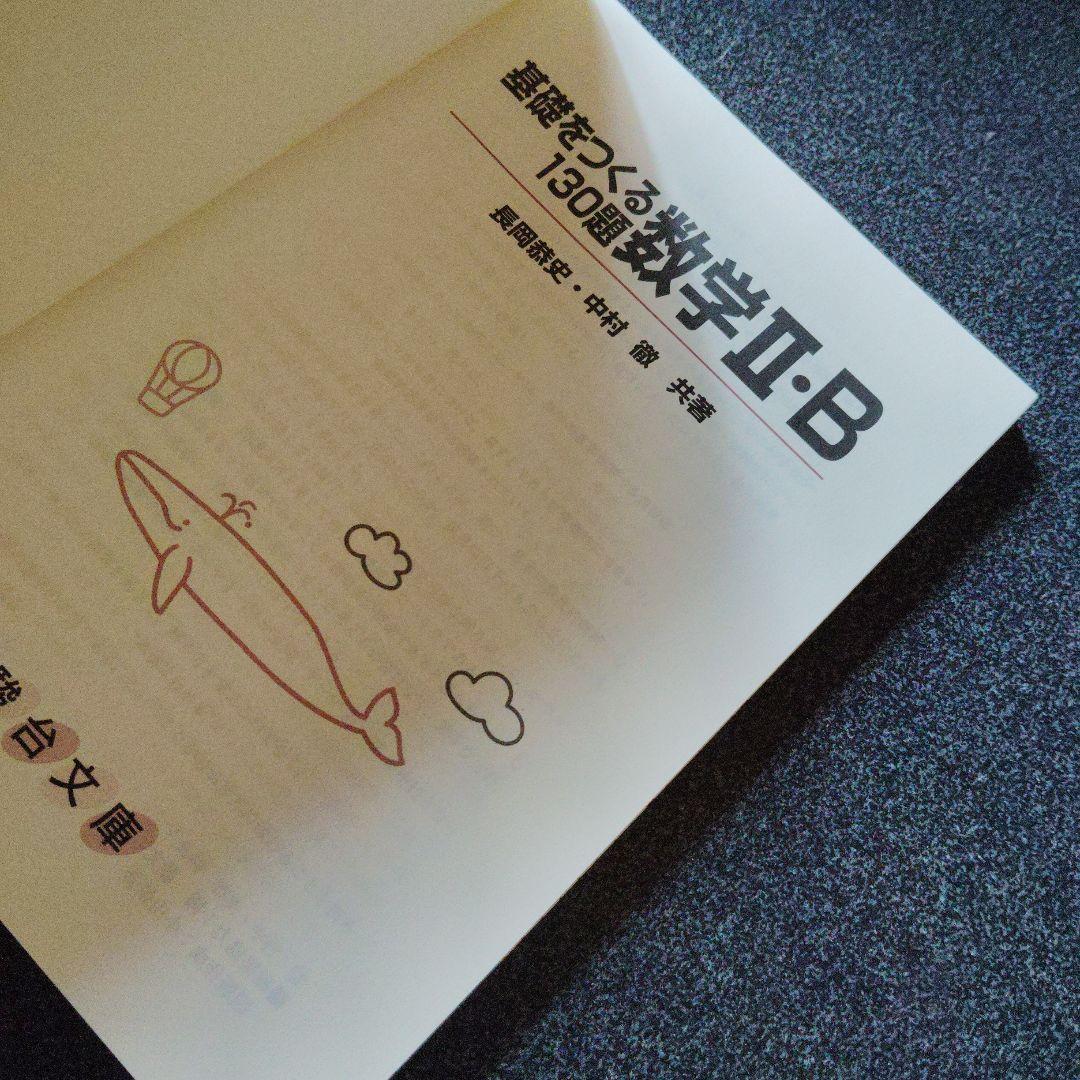 基礎をつくる
130題
数学Ⅱ・B
長岡恭史・中村 徹 共著
台文庫